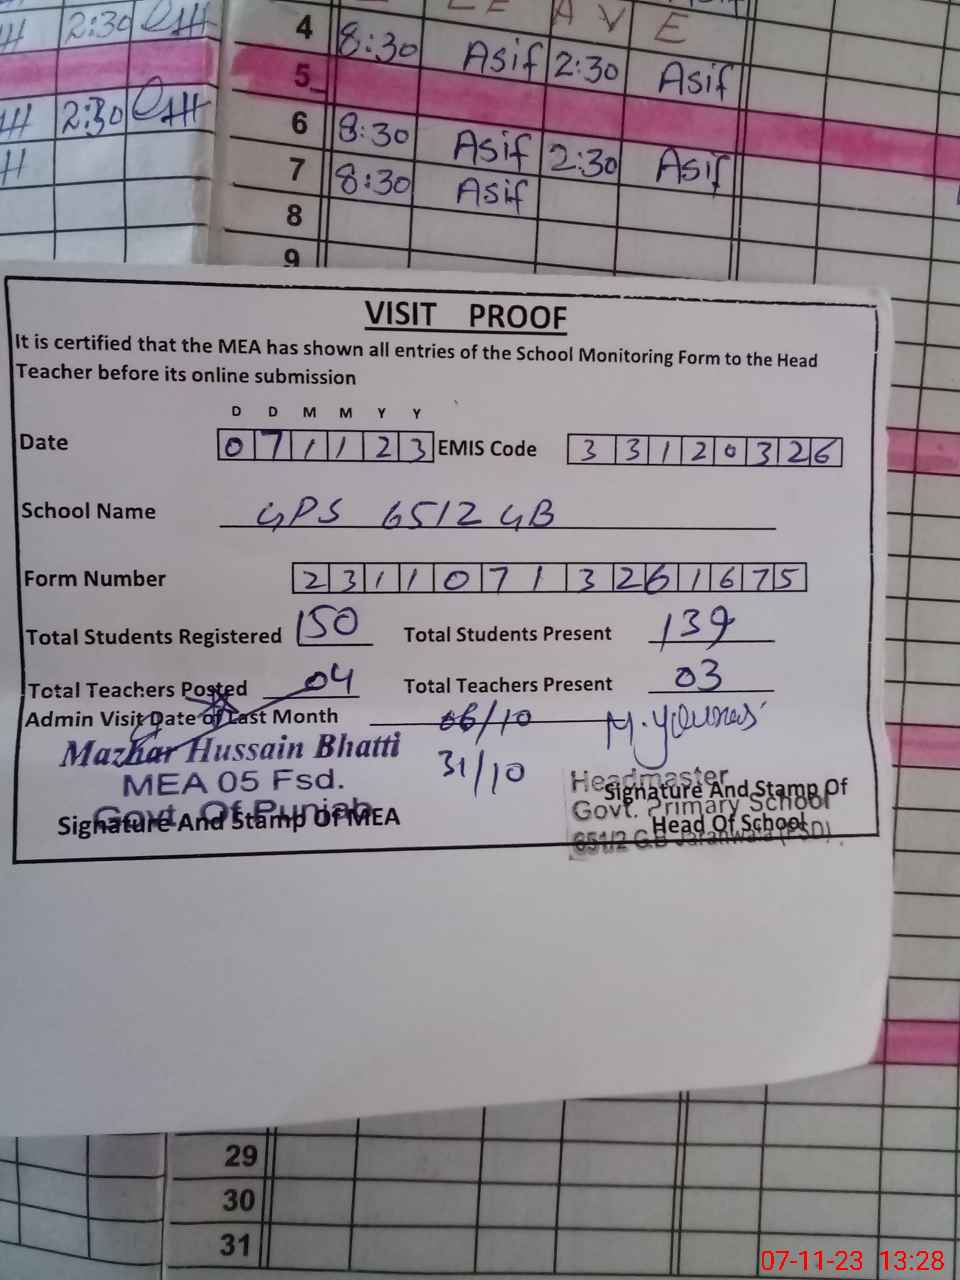 2:30
4 8:30 Asif 2:30 Asif
L E A V E
5
2:30
6 8:30 Asif 2:30 Asif
7 8:30 Asif
8
9
VISIT PROOF
It is certified that the MEA has shown all entries of the School Monitoring Form to the Head
Teacher before its online submission
D D M M Y Y
Date 0 7 1 1 2 3 EMIS Code 3 3 1 2 0 3 2 6
School Name GPS 651/2 GB
Form Number 2 3 1 1 0 7 1 3 2 6 1 6 7 5
Total Students Registered 150 Total Students Present 139
Total Teachers Posted 04 Total Teachers Present 03
Admin Visit Date of Last Month 06/10 M. Younas
31/10
Mazhar Hussain Bhatti
MEA 05 Fsd.
Govt. Of Punjab
Signature And Stamp Of MEA
Headmaster
Govt. Primary School
651/2 G.B Jaranwala (FSD).
Signature And Stamp Of
Head Of School
29
30
31
07-11-23 13:28